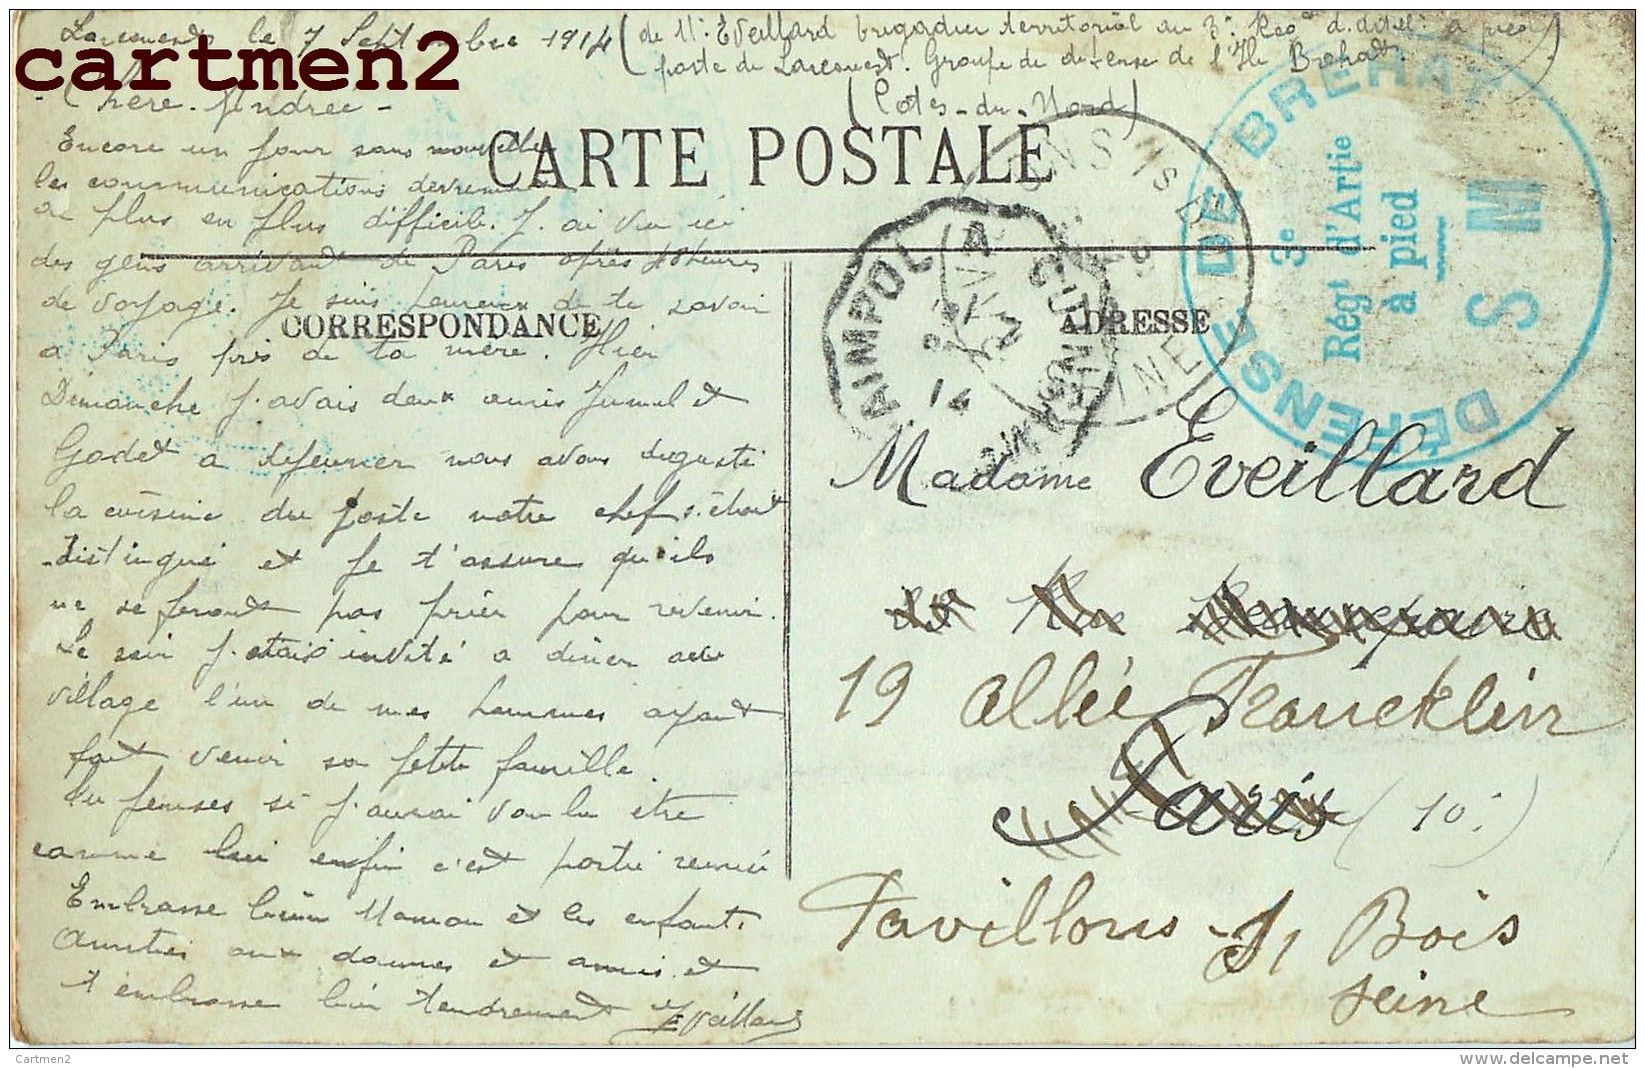 Larcouest le 7 Septembre 1914 (de Mr Eveillard brigadier territorial au 3e Reg d'artel à pied
poste de Larcouest. Groupe de défense de l'Ile Brehat.)
(Cotes-du-Nord)
cartmen2
- Chère Andrée -
CARTE POSTALE
Encore un jour sans nouvelles
les communications deviennent
de plus en plus difficile. J'ai vu ici
des gens arrivant de Paris après 48 heures
de voyage. Je suis heureux de te savoir
CORRESPONDANCE
à Paris près de ta mère. Hier
Dimanche j'avais deux amis Jumel et
Godet a dejeuner nous avons degusté
la cuisine du poste notre chef s'étant
distingué et je t'assure qu'ils
ne se feront pas prier pour revenir.
Le soir j'etais invité a diner au
village l'un de mes hommes ayant
fait venir sa petite famille.
Tu penses si j'aurai voulu etre
comme lui enfin c'est partie remise
Embrasse bien Maman et les enfants
Amitiés aux dames et amis et
t'embrasse bien tendrement Eveillard
ADRESSE
Madame Eveillard
Rue Beaurepaire
19 allée Francklin
Paris (10e)
Pavillons-s/ Bois
Seine
DÉFENSE DE BREHAT
3e
Régt d'Artie
à pied
S M
PAIMPOL A GUINGAMP
14
Cartmen2
www.delcampe.net